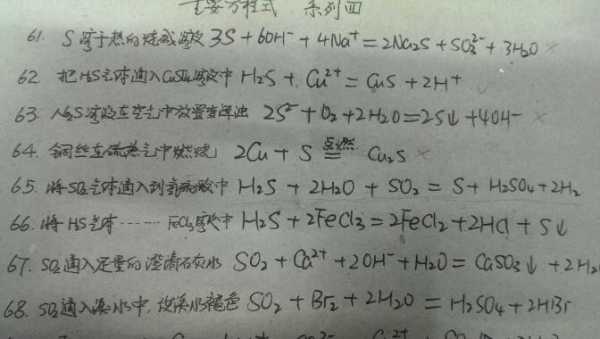 主要方程式 系列四
61. S溶于热的烧碱溶液 3S+6OH⁻+4Na⁺=2Na₂S+SO₃²⁻+3H₂O ×
62. 把H₂S气体通入CuSO₄溶液中 H₂S+Cu²⁺=CuS+2H⁺
63. Na₂S溶液在空气中放置变浑浊 2S²⁻+O₂+2H₂O=2S↓+4OH⁻ ×
64. 铜丝在硫蒸气中燃烧 2Cu+S 点燃= Cu₂S ×
65. 将SO₂气体通入到氢硫酸中 H₂S+2H₂O+SO₂=S+H₂SO₄+2H₂
66. 将H₂S气体……FeCl₃溶液中 H₂S+2FeCl₃=2FeCl₂+2HCl+S↓
67. SO₂通入足量的澄清石灰水 SO₂+Ca²⁺+2OH⁻+H₂O=CaSO₃↓+2H₂
68. SO₂通入溴水中,使溴水褪色 SO₂+Br₂+2H₂O=H₂SO₄+2HBr